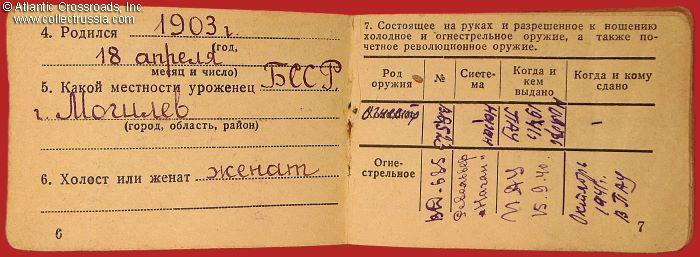 © Atlantic Crossroads, Inc.
www.collectrussia.com
4. Родился 1903 г.
(год,
18 апреля
месяц и число)
5. Какой местности уроженец БССР
г. Могилев
(город, область, район)
6. Холост или женат женат
6
7. Состоящее на руках и разрешенное к ношению
холодное и огнестрельное оружие, а также по-
четное революционное оружие.
Род оружия № Систе-ма Когда и кем выдано Когда и кому сдано
Наган 1941 –
Огне-стрельное Револьвер „Наган“ 15.9.40. Октябрь 1941 г. в ПАУ
7